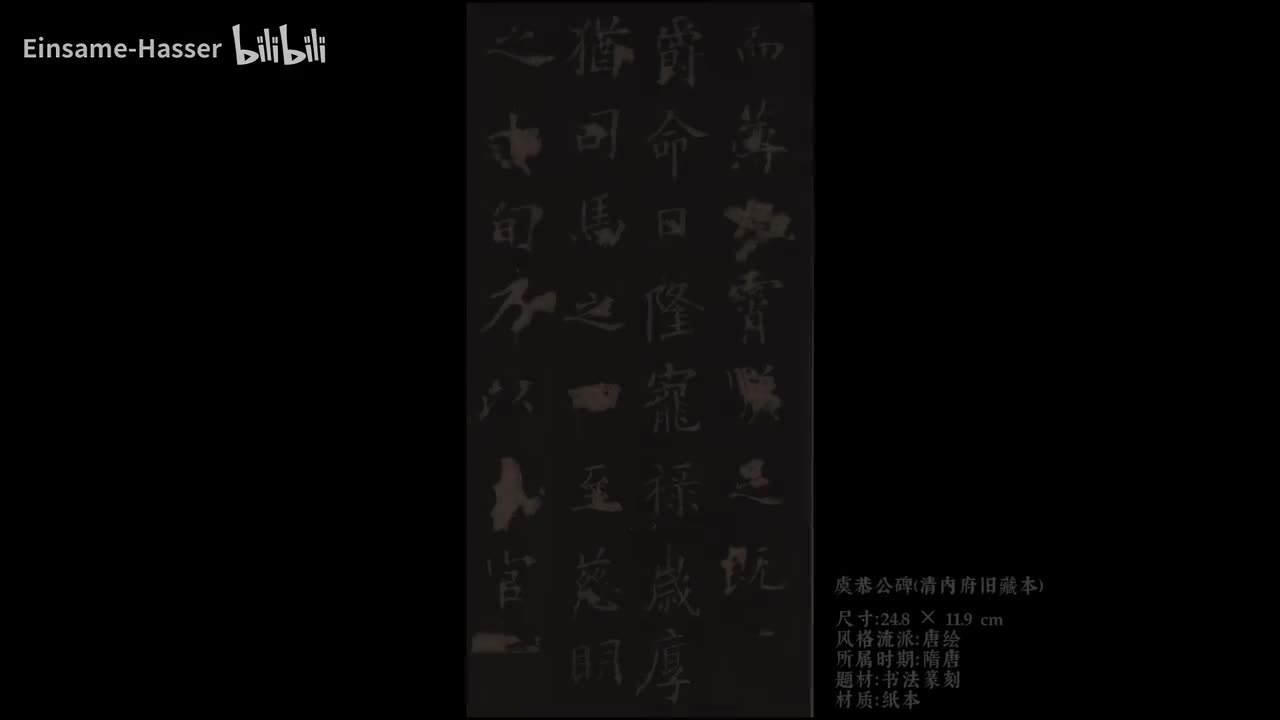 Einsame-Hasser bilibili
而薄
霄
足既
爵命日隆寵祿歲厚
猶司馬之
至慈明
之
旬
以
官
虞恭公碑(清内府旧藏本)
尺寸:24.8 × 11.9 cm
风格流派:唐绘
所属时期:隋唐
题材:书法篆刻
材质:纸本